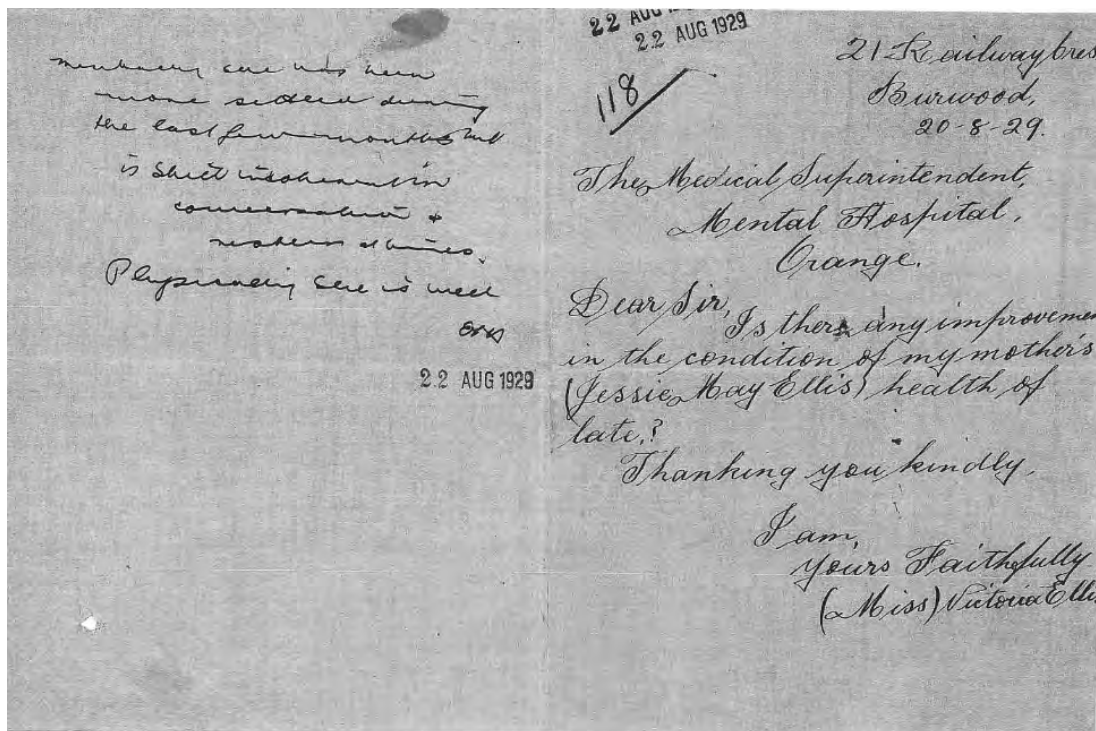 mentally she has been
more settled during
the last few months but
is still incoherent in
conversation &
restless at times.
Physically she is well
22 AUG 1929
22 AUG
22 AUG 1929
118
21 Railway Cres
Burwood,
20-8-29.
The Medical Superintendent,
Mental Hospital,
Orange.
Dear Sir,
Is there any improvemen
in the condition of my mother's
(Jessie May Ellis) health of
late,?
Thanking you kindly,
I am,
Yours Faithfully
(Miss) Victoria Ellis